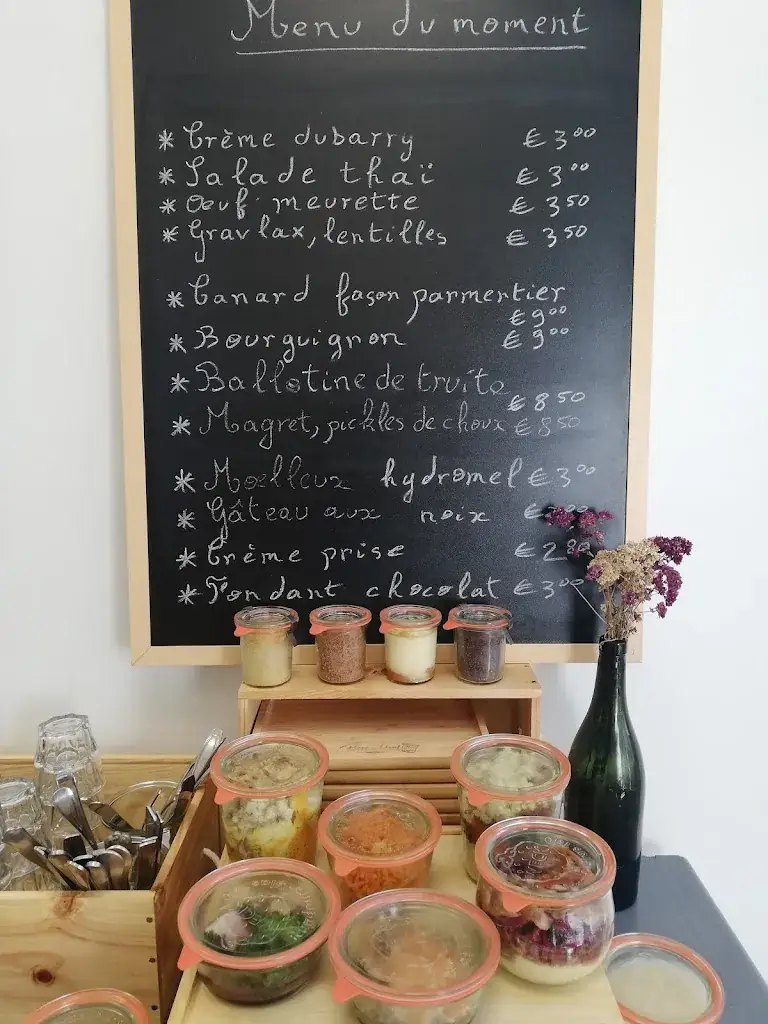 Menu du moment
* Crème dubarry € 3⁰⁰
* Salade thaï € 3⁰⁰
* Œuf meurette € 3⁵⁰
* Gravlax, lentilles € 3⁵⁰
* Canard façon parmentier
€ 9⁰⁰
* Bourguignon € 9⁰⁰
* Ballotine de truite
€ 8⁵⁰
* Magret, pickles de choux € 8⁵⁰
* Moelleux hydromel € 3⁰⁰
* Gâteau aux noix €
* Crème prise € 2⁸⁰
* Fondant chocolat € 3⁰⁰